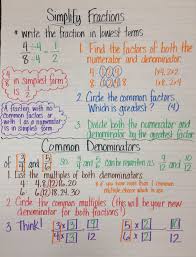 Simplify Fractions
* Write the fraction in lowest terms
4 ÷ 4 = 1
8 ÷ 4 = 2
4/8 in simplest form is 1/2
A fraction with no common factors or with 1 as a numerator is in simplest form
1. Find the factors of both the numerator and denominator.
4: 1, 2, 4 1x4, 2x2
8: 1, 2, 4, 8 1x8, 2x4
2. Circle the common factors. Which is greatest? (4)
3. Divide both the numerator and denominator by the greatest factor
Common Denominators
of 3/4 and 5/6 so 3/4 and 5/6 can be rewritten as 9/12 and 10/12
1. List the multiples of both denominators
4: 4, 8, 12, 16, 20
6: 6, 12, 18, 24, 30
2. Circle the common multiples (this will be your new denominator for both fractions!)
3. Think! 3 x 3 = 9 5 x 2 = 10
4 x 3 12 6 x 2 12